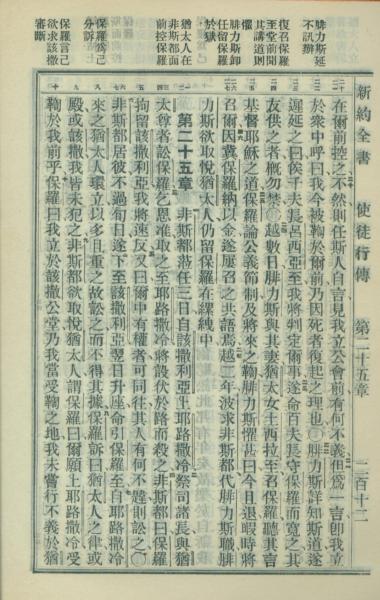 新約全書 使徒行傳 第二十五章 二百十二
腓力斯延
不訊辦
復召保羅
至堂前聞
其講道則
懼
腓力斯卸
任留保羅
於獄
猶太人在
非斯都面
前控保羅
保羅爲己
分訴
保羅言己
欲求該撒
審斷
在爾前控之不然則任斯人自言見我立公會前有何不義但爲一言卽我立
於衆中呼曰我今被鞫於爾前乃因死者復起之理也○腓力斯詳知斯道遂
遲延之曰俟千夫長呂西亞至我將判定爾事遂命百夫長守保羅而寬之其
友供之者概勿禁○越數日腓力斯與其妻猶太女土西拉至召保羅聽其言
基督耶穌之道保羅論公義節制及將來之鞫腓力斯懼甚曰今且退暇時將
召爾因冀保羅納以金遂屢召之共語焉越二年波求非斯都代腓力斯職腓
力斯欲取悅猶太人仍留保羅在縲絏中
第二十五章 非斯都蒞任三日自該撒利亞上耶路撒冷祭司諸長與猶
太尊者訟保羅乞恩准取之至耶路撒冷將設伏於路而殺之非斯都曰保羅
拘留該撒利亞我將速反又曰爾中有權者可同往其人有何不韙則訟之○
非斯都居彼不過旬日遂下至該撒利亞翌日升座命引保羅至自耶路撒冷
來之猶太人環立以多且重之故訟之而不得其據保羅訴曰猶太人之律或
殿或該撒我皆未犯之非斯都欲取悅猶太人謂保羅曰爾願上耶路撒冷受
鞫於我前乎保羅曰我立於該撒公堂乃我當受鞫之地我未嘗行不義於猶